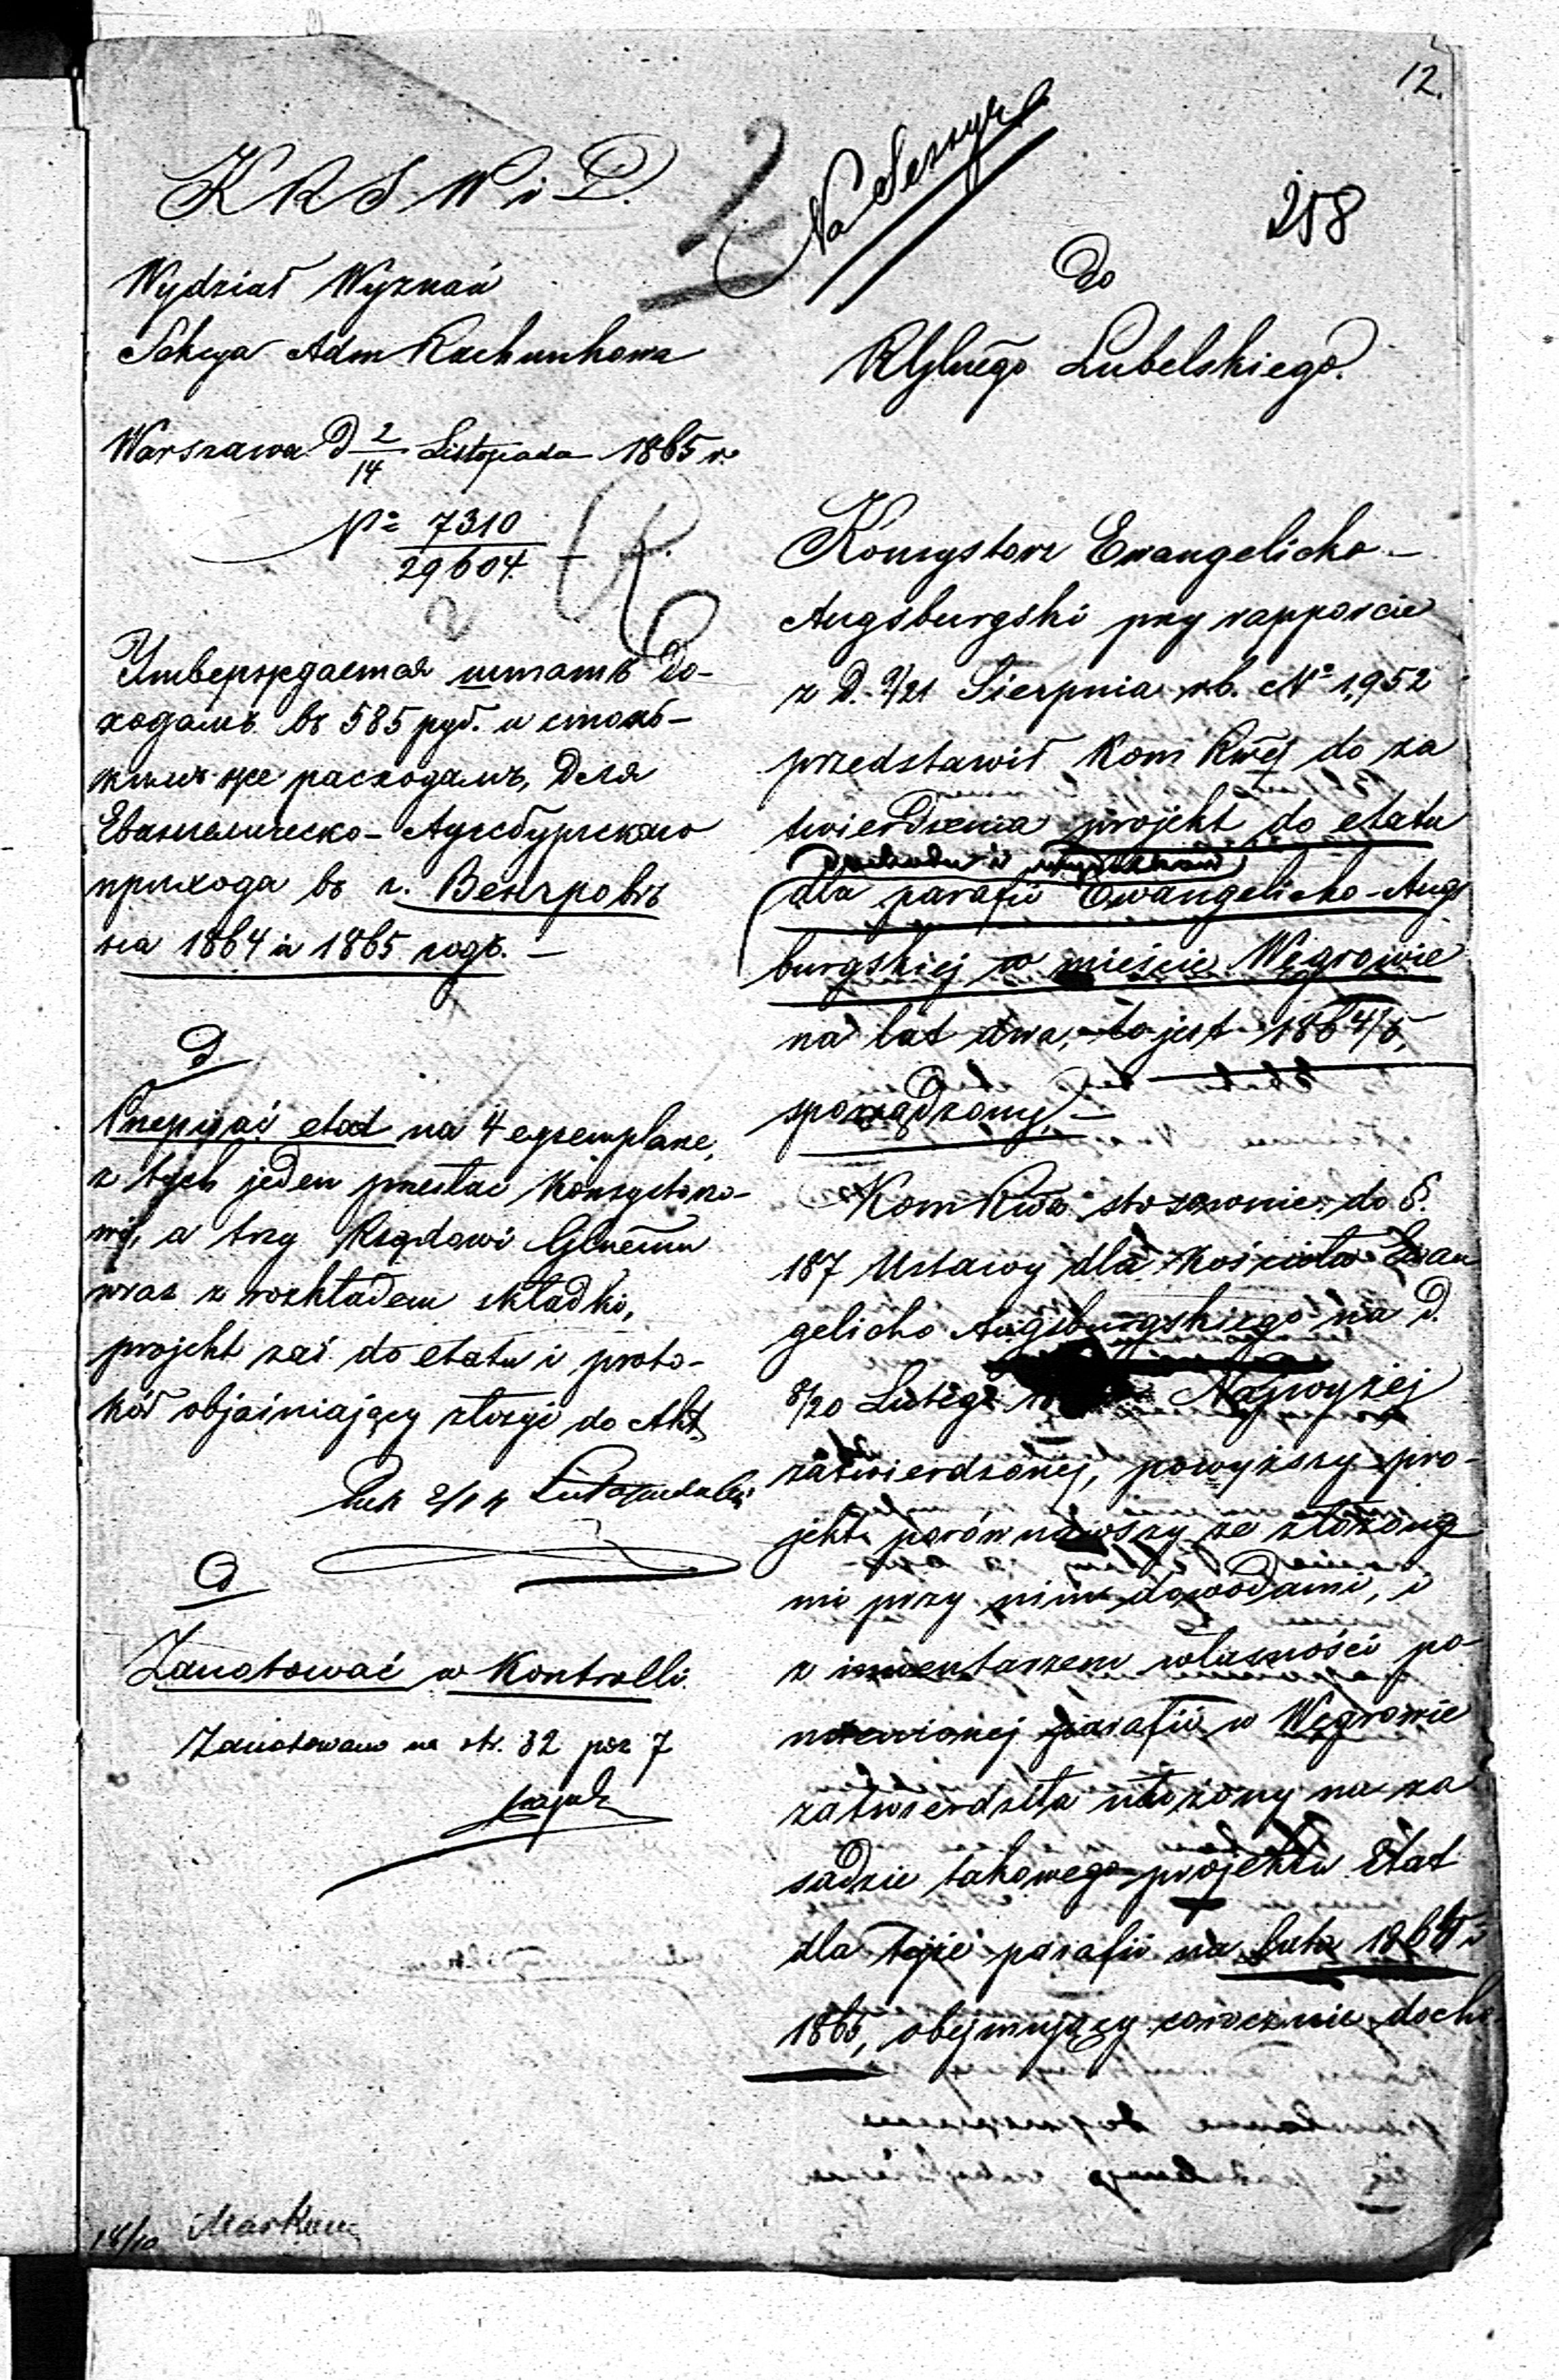 12.
258
2
Na Sessyę
K R S W i D.
Wydział Wyznań
Sekcya Adm Rachunkowa
Warszawa d 2/14 Listopada 1865 r.
Nº 7310/29604.
Утверждается штатъ до-
ходамъ въ 585 руб. и столь-
кимъ же расходамъ, для
Евангелическо-Аугсбургскаго
прихода въ г. Венгровѣ
на 1864 и 1865 годъ. –
D
Przepisać etat na 4 egzemplarze,
z tych jeden przesłać Konsystorzo-
wi, a trzy Rządowi Glnemu
wraz z rozkładem składki,
projekt zaś do etatu i proto-
kół objaśniający złożyć do Akt
2/14 Listopada
D
Zanotować w Kontrolli.
Zanotowano na str. 32 poz 7
18/10
Do
RGlnego Lubelskiego.
Konsystorz Ewangelicko-
Augsburgski przy rapporcie
z D. 9/21 Sierpnia r.b. Nº 1,952
przedstawił Kom Rwej do za
twierdzenia projekt do etatu
dochodów i wydatków
dla parafii Ewangelicko-Augs
burgskiej w mieście Węgrowie
na lat dwa, to jest 1864/5,
sporządzony. –
Kom Rwa stosownie do §.
187 Ustawy dla Kościoła Ewan
gelicko Augsburgskiego na d.
8/20 Lutego Najwyżej
zatwierdzonej, powyższy pro-
jekt porównawszy ze złożone
mi przy nim dowodami, i
z inwentarzem własności po-
mienionej parafii w Węgrowie
zatwierdziła ułożony na za
sadzie takowego projektu Etat
dla tejże parafii na lata 1864 i
1865, obejmujący corocznie docho